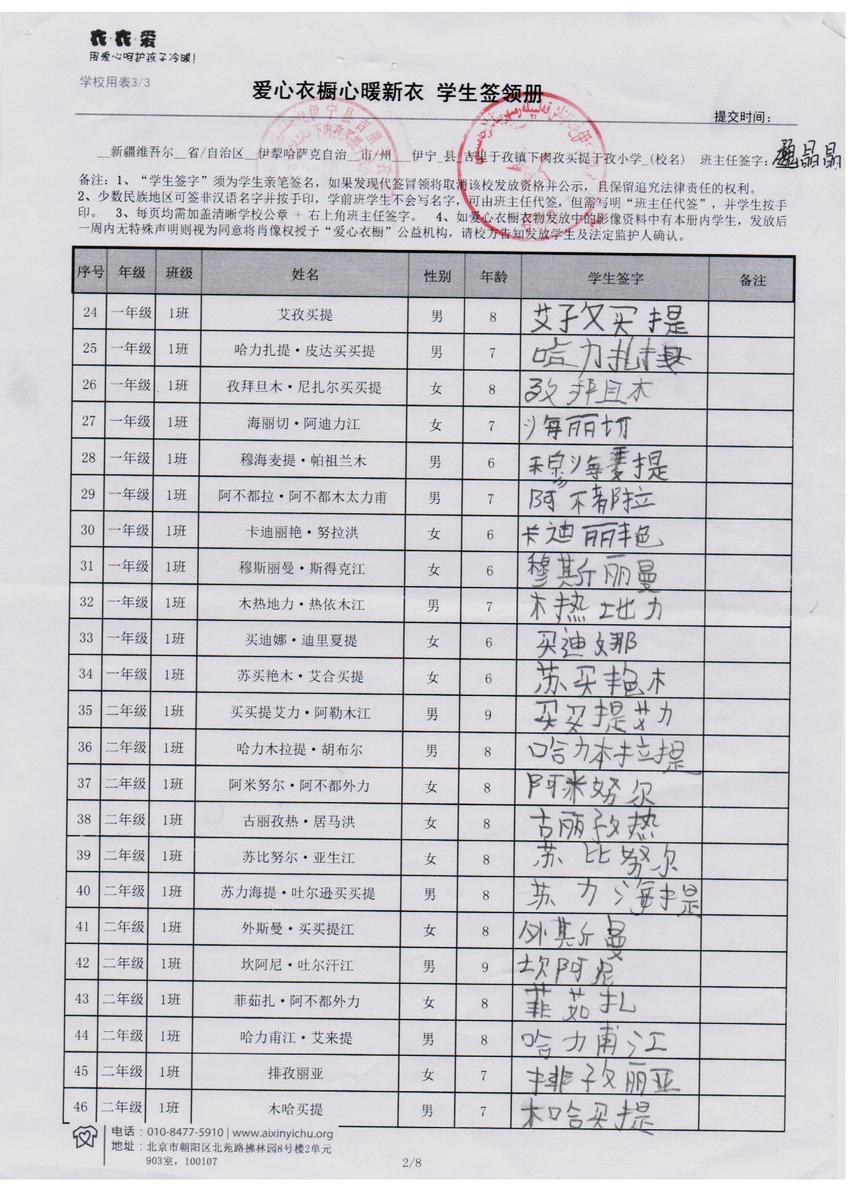 衣衣爱
用爱心呵护孩子冷暖!
学校用表3/3
爱心衣橱心暖新衣 学生签领册
提交时间:
新疆维吾尔 省/自治区 伊犁哈萨克自治 市/州 伊宁 县 吉里于孜镇下肉孜买提于孜小学 (校名) 班主任签字: 魏晶晶
备注:1、“学生签字”须为学生亲笔签名,如果发现代签冒领将取消该校发放资格并公示,且保留追究法律责任的权利。
2、少数民族地区可签非汉语名字并按手印,学前班学生不会写名字,可由班主任代签,但需写明“班主任代签”,并学生按手
印。 3、每页均需加盖清晰学校公章 + 右上角班主任签字。 4、如爱心衣橱衣物发放中的影像资料中有本册内学生,发放后
一周内无特殊声明则视为同意将肖像权授予“爱心衣橱”公益机构,请校方告知发放学生及法定监护人确认。
序号 年级 班级 姓名 性别 年龄 学生签字 备注
24 一年级 1班 艾孜买提 男 8 艾孜买提
25 一年级 1班 哈力扎提·皮达买买提 男 7 哈力扎提
26 一年级 1班 孜拜旦木·尼扎尔买买提 女 8 孜拜旦木
27 一年级 1班 海丽切·阿迪力江 女 7 海丽切
28 一年级 1班 穆海麦提·帕祖兰木 男 6 穆海麦提
29 一年级 1班 阿不都拉·阿不都木太力甫 男 7 阿不都拉
30 一年级 1班 卡迪丽艳·努拉洪 女 6 卡迪丽艳
31 一年级 1班 穆斯丽曼·斯得克江 女 6 穆斯丽曼
32 一年级 1班 木热地力·热依木江 男 7 木热地力
33 一年级 1班 买迪娜·迪里夏提 女 6 买迪娜
34 一年级 1班 苏买艳木·艾合买提 女 6 苏买艳木
35 二年级 1班 买买提艾力·阿勒木江 男 9 买买提艾力
36 二年级 1班 哈力木拉提·胡布尔 男 8 哈力木拉提
37 二年级 1班 阿米努尔·阿不都外力 女 8 阿米努尔
38 二年级 1班 古丽孜热·居马洪 女 8 古丽孜热
39 二年级 1班 苏比努尔·亚生江 女 8 苏比努尔
40 二年级 1班 苏力海提·吐尔逊买买提 男 8 苏力海提
41 二年级 1班 外斯曼·买买提江 女 8 外斯曼
42 二年级 1班 坎阿尼·吐尔汗江 男 9 坎阿尼
43 二年级 1班 菲茹扎·阿不都外力 女 8 菲茹扎
44 二年级 1班 哈力甫江·艾来提 男 8 哈力甫江
45 二年级 1班 排孜丽亚 女 7 排孜丽亚
46 二年级 1班 木哈买提 男 7 木哈买提
电话:010-8477-5910 | www.aixinyichu.org
地址:北京市朝阳区北苑路拂林园8号楼2单元
903室,100107
2/8